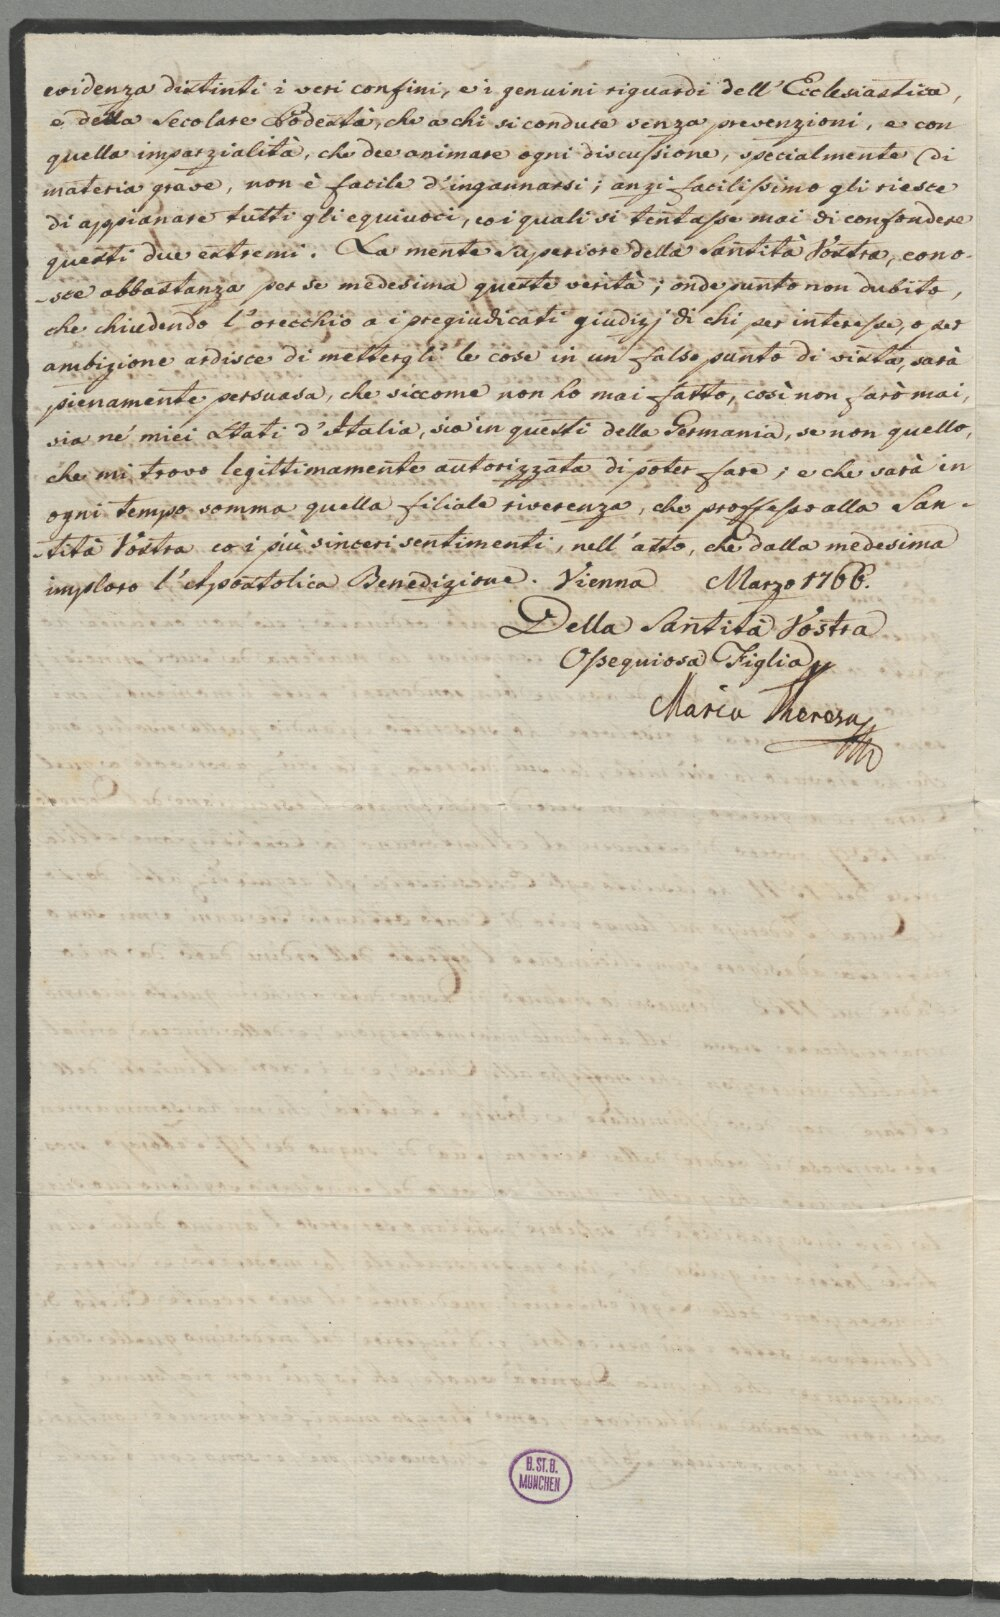 evidenza distinti i veri confini, e i genuini riguardi dell' Ecclesiastica,
e della Secolare Podestà, che a chi si conduce senza prevenzioni, e con
quella imparzialità, che dee animare ogni discussione, specialmente di
materia grave, non è facile d'ingannarsi; anzi facilissimo gli riesce
di appianare tutti gli equivoci, co i quali si tentasse mai di confondere
questi due estremi. La mente superiore della Santità Vostra, cono-
-sce abbastanza per se medesima queste verità; onde punto non dubito,
che chiudendo l'orecchio a i pregiudicati giudizj di chi, per interesse, o per
ambizione ardisce di mettergli le cose in un falso punto di vista, sarà
pienamente persuasa, che siccome non ho mai fatto, così non farò mai,
sia ne' miei Stati d'Italia, sia in questi della Germania, se non quello,
che mi trovo legittimamente autorizzata di poter fare; e che sarà in
ogni tempo somma quella filiale riverenza, che professo alla San-
-tità Vostra co i più sinceri sentimenti, nell'atto, che dalla medesima
imploro l'Apostolica Benedizione. Vienna Marzo 1766.
Della Santità Vostra
Ossequiosa Figlia
Maria Theresa
B. ST. B.
MÜNCHEN